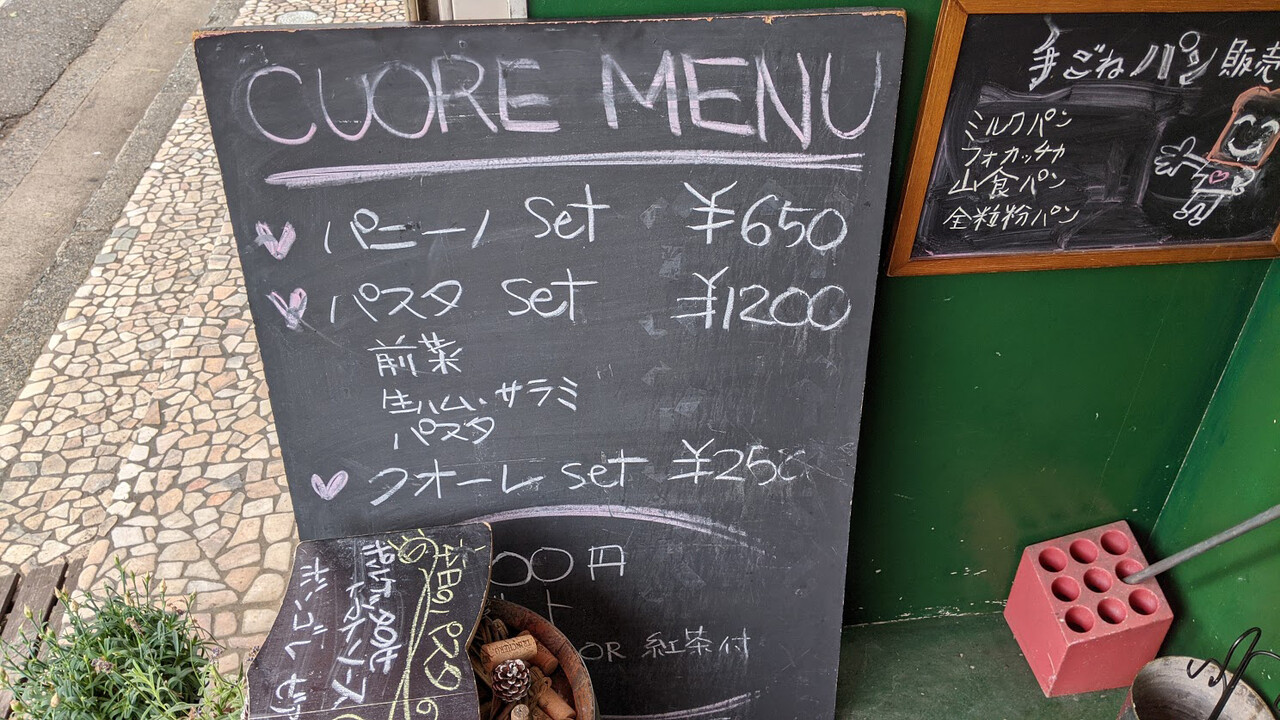 CUORE MENU
パニーノ set ¥650
パスタ set ¥1200
前菜
生ハム、サラミ
パスタ
クオーレ set ¥250
00円
OR 紅茶付
手ごねパン販売
ミルクパン
フォカッチャ
山食パン
全粒粉パン
パスタ
トマトソース
ボンゴレ